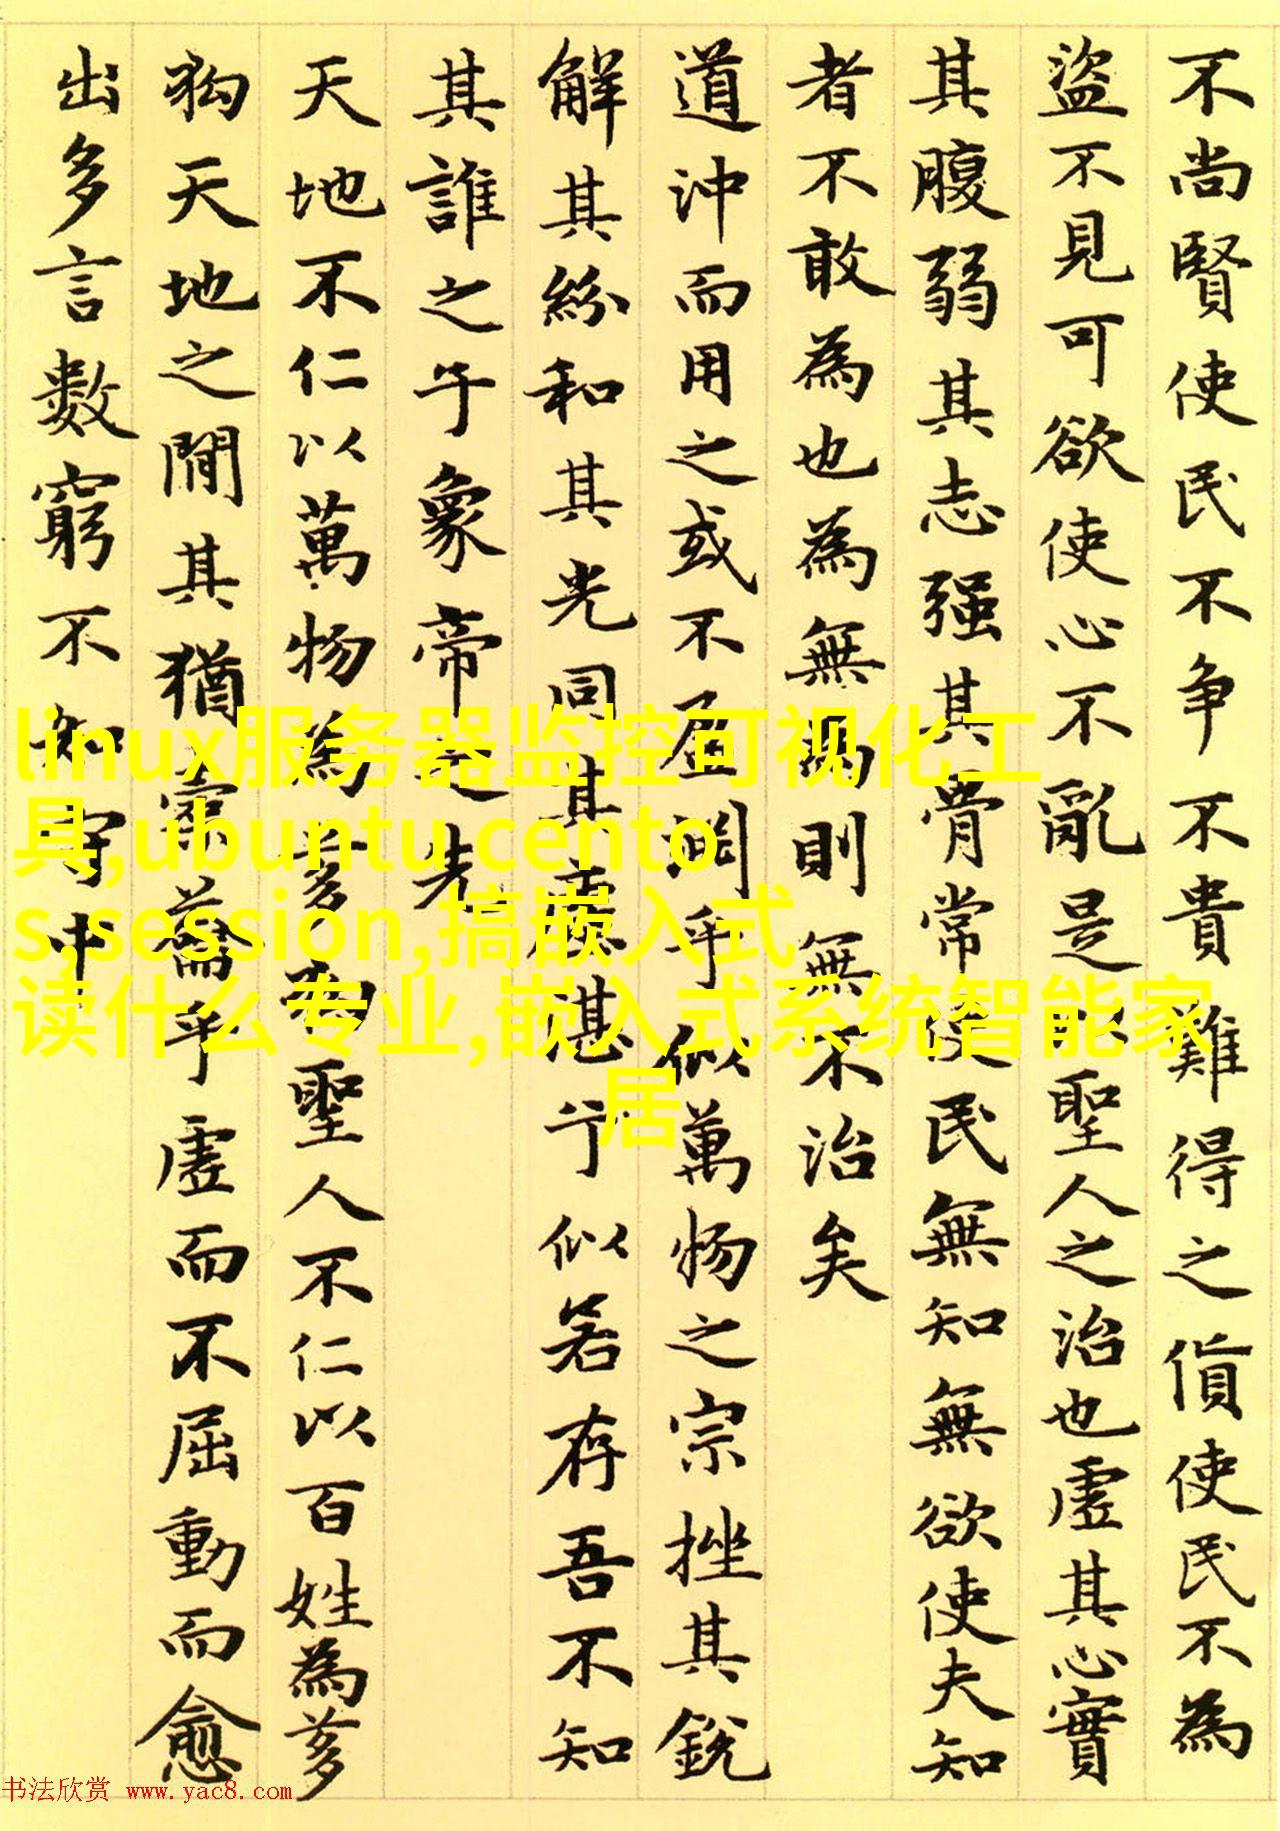 不尚賢使民不争不貴難得之貨使民不為
盜不見可欲使心不亂是以聖人之治也虛其心實
其腹弱其志强其骨常使民無知無欲使夫知
者不敢為也為無為則無不治矣
道沖而用之或不盈渊乎似萬物之宗挫其銳
解其紛和其光同其塵湛兮似若存吾不知
其誰之子象帝之先
天地不仁以萬物為芻狗聖人不仁以百姓為芻
狗天地之間其猶橐籥乎虛而不屈動而愈
出多言數窮不如守中
linux服务器监控可视化工
具,ubuntu,cento
s,session,搞嵌入式
读什么专业,嵌入式系统智能家
居
书法欣赏 www.yac8.com